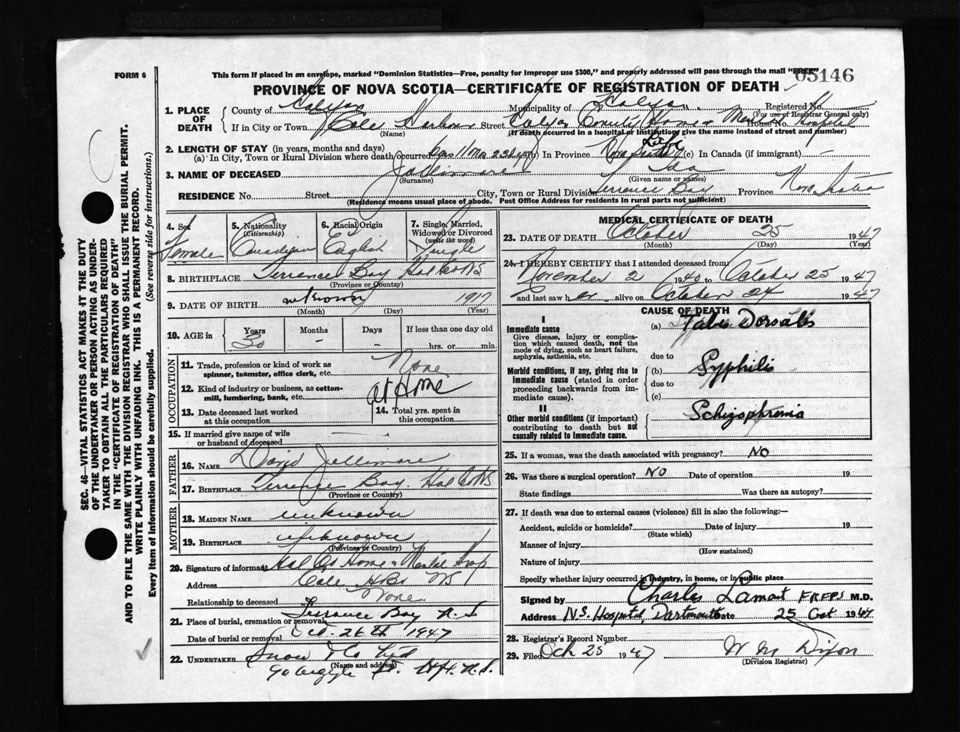 FORM 6
This form if placed in an envelope, marked "Dominion Statistics—Free, penalty for improper use $300," and properly addressed will pass through the mail "FREE"
05146
PROVINCE OF NOVA SCOTIA—CERTIFICATE OF REGISTRATION OF DEATH
1. PLACE OF DEATH County of Halifax Municipality of Halifax Registered No.
(For use of Registrar General only)
If in City or Town Cole Harbour Street Halifax County Home & Mental Hospital House No.
(Name) (If death occurred in a hospital or institution, give the name instead of street and number)
2. LENGTH OF STAY (in years, months and days)
(a) In City, Town or Rural Division where death occurred 6 yrs 11 Mos 23 dys (b) In Province Life (c) In Canada (if immigrant) —
3. NAME OF DECEASED Jollimore Ida
(Surname) (Given name or names)
RESIDENCE No. Street City, Town or Rural Division Terrance Bay Province Nova Scotia
(Residence means usual place of abode. Post Office Address for residents in rural parts not sufficient)
4. Sex Female
5. Nationality (Citizenship) Canadian
6. Racial Origin English
7. Single, Married, Widowed or Divorced (write the word) Single
8. BIRTHPLACE Terrance Bay Hal Co NS
(Province or Country)
9. DATE OF BIRTH unknown 1917
(Month) (Day) (Year)
10. AGE in Years 30 Months – Days – If less than one day old
hrs. or min.
OCCUPATION
11. Trade, profession or kind of work as spinner, teamster, office clerk, etc. None
12. Kind of industry or business, as cotton-mill, lumbering, bank, etc. at Home
13. Date deceased last worked at this occupation
14. Total yrs. spent in this occupation
15. If married give name of wife or husband of deceased —
FATHER
16. NAME David Jollimore
17. BIRTHPLACE Terrance Bay. Hal Co NS
(Province or Country)
MOTHER
18. MAIDEN NAME unknown
19. BIRTHPLACE unknown
(Province or Country)
20. Signature of informant Hal Co Home & Mental Hosp
Address Cole Hbr NS
Relationship to deceased None
21. Place of burial, cremation or removal Terrance Bay N.S
Date of burial or removal Oct. 26th 1947
22. UNDERTAKER Snow & Co Ltd
(Name and address)
90 Argyle St. Hfx. N.S.
MEDICAL CERTIFICATE OF DEATH
23. DATE OF DEATH October 25 1947
(Month) (Day) (Year)
24. I HEREBY CERTIFY that I attended deceased from
November 2 1940 to October 25 1947
and last saw her alive on October 24 1947
CAUSE OF DEATH
I
Immediate cause
Give disease, injury or complication which caused death, not the mode of dying, such as heart failure, asphyxia, asthenia, etc.
(a) Tabes Dorsalis
due to
Morbid conditions, if any, giving rise to immediate cause (stated in order proceeding backwards from immediate cause).
(b) Syphilis
due to
(c)
II
Other morbid conditions (if important) contributing to death but not causally related to immediate cause.
Schizophrenia
25. If a woman, was the death associated with pregnancy? NO
26. Was there a surgical operation? NO Date of operation 19
State findings Was there an autopsy?
27. If death was due to external causes (violence) fill in also the following:—
Accident, suicide or homicide? Date of injury 19
(State which)
Manner of injury
(How sustained)
Nature of injury
Specify whether injury occurred in industry, in home, or in public place
Signed by Charles Lamont M.D.
Address N.S. Hospital Dartmouth Date 25 Oct 1947
28. Registrar's Record Number
29. Filed Oct 25 1947 W M Dixon
(Division Registrar)
SEC. 46—VITAL STATISTICS ACT MAKES IT THE DUTY
OF THE UNDERTAKER OR PERSON ACTING AS UNDERTAKER
TO OBTAIN ALL THE PARTICULARS REQUIRED
IN THE "CERTIFICATE OF REGISTRATION OF DEATH"
AND TO FILE THE SAME WITH THE DIVISION REGISTRAR WHO SHALL ISSUE THE BURIAL PERMIT.
WRITE PLAINLY WITH UNFADING INK. THIS IS A PERMANENT RECORD.
Every item of information should be carefully supplied. (See reverse side for instructions.)